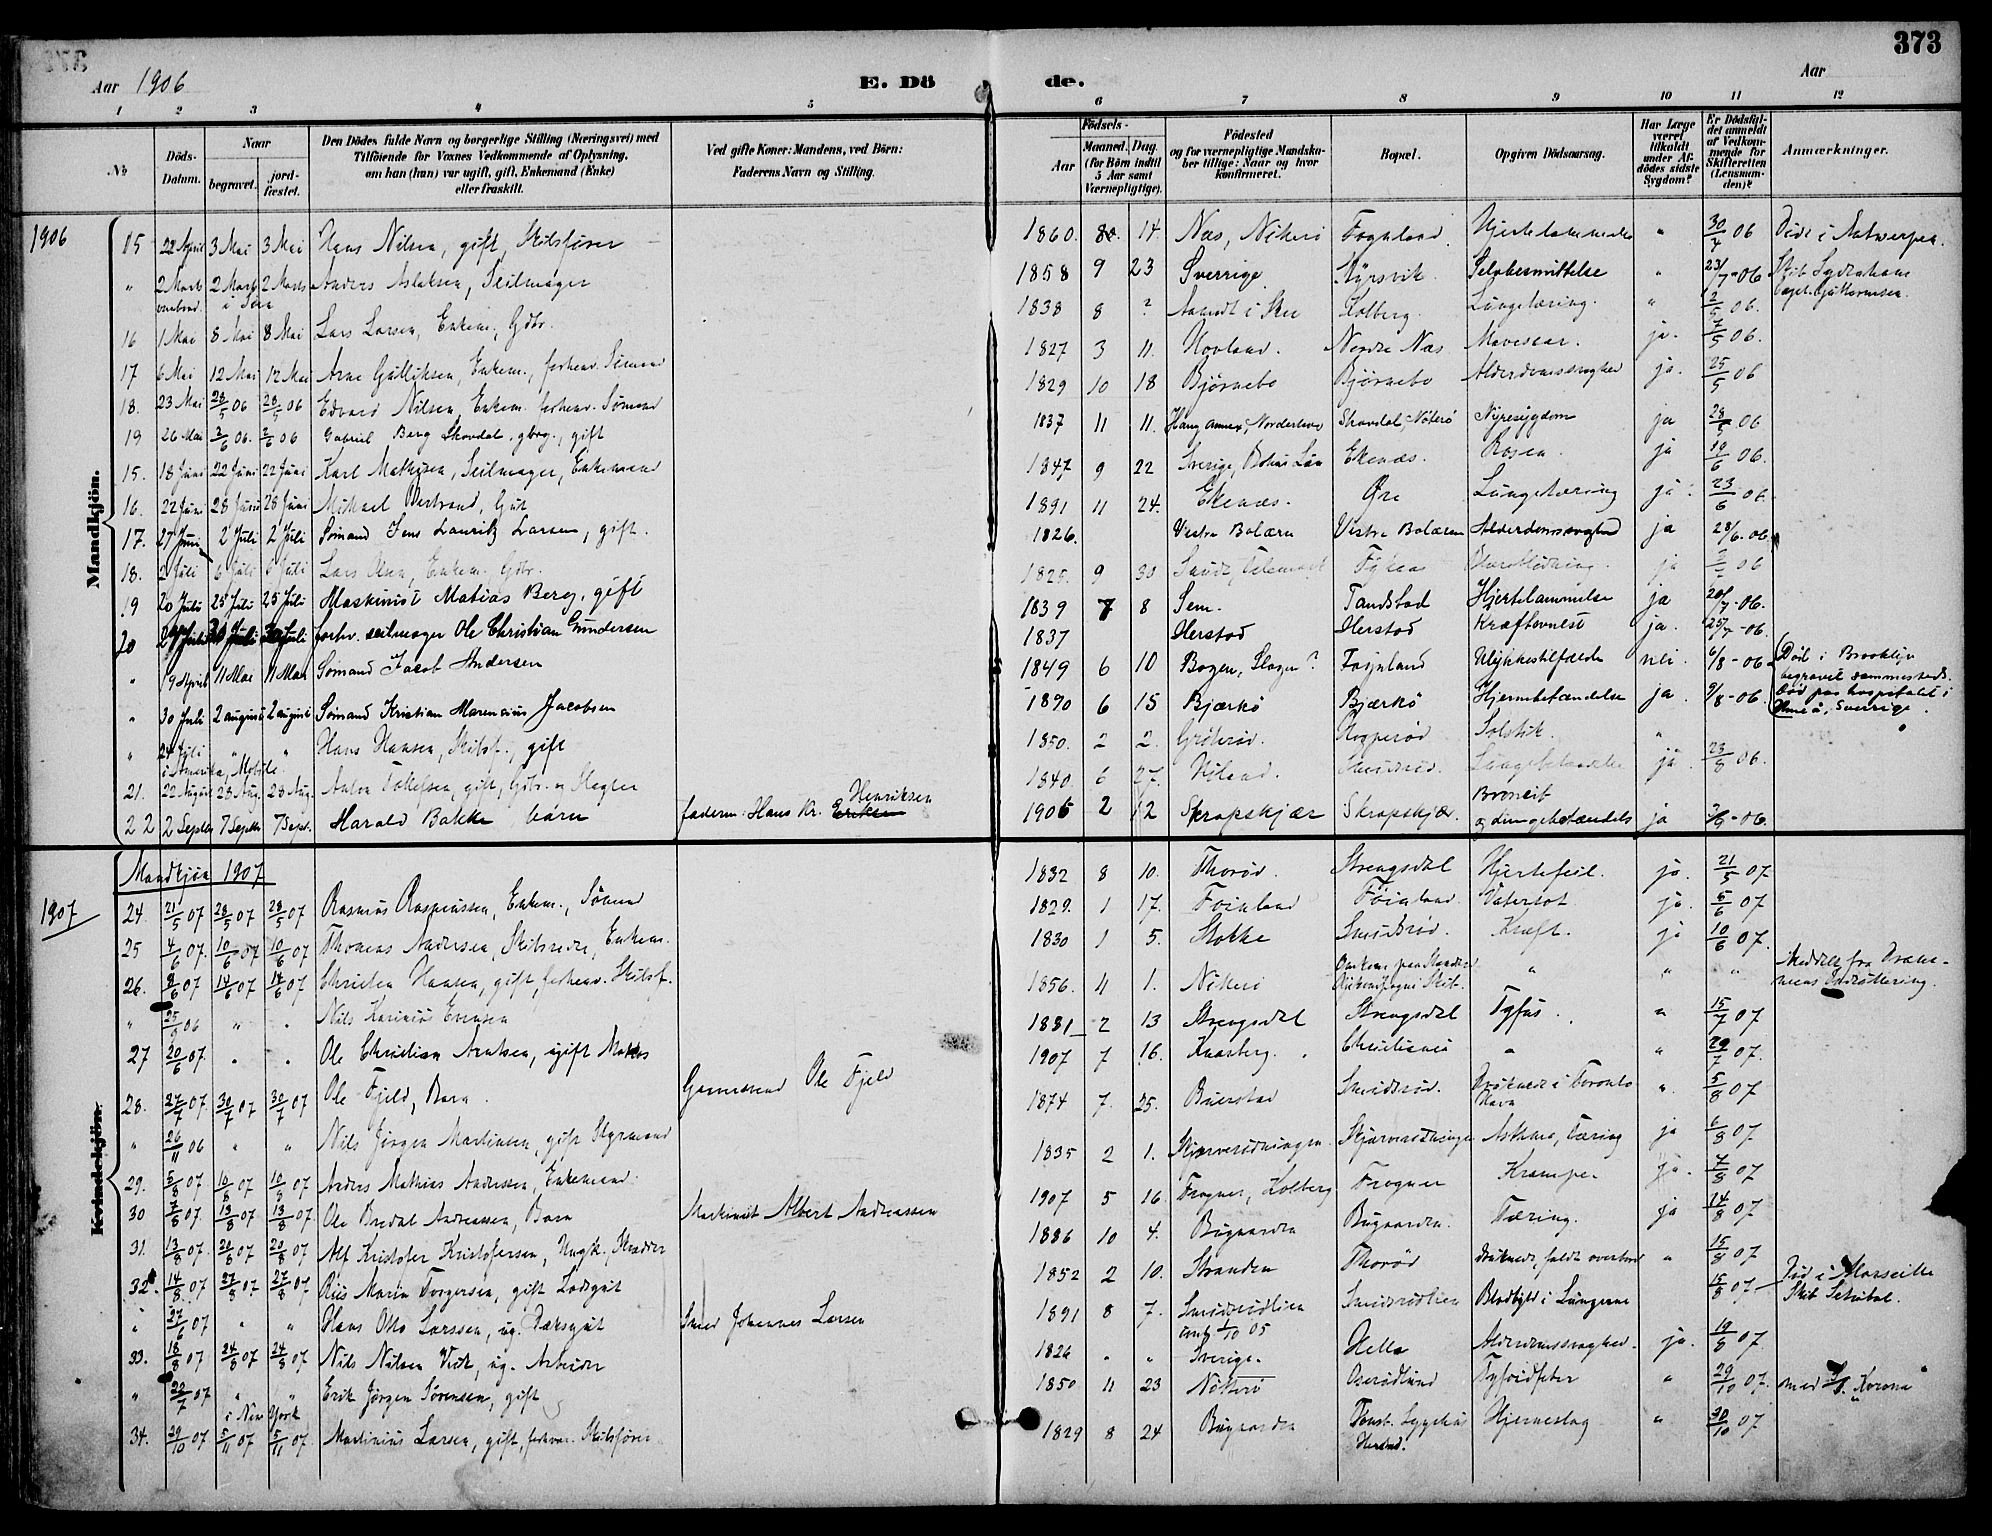 373
Aar 1906
E. Dö de.
Aar
1 2 3 4 5 6 7 8 9 10 11 12
№
Döds-Datum.
Naar
begravet.
jordfæstet.
Den Dödes fulde Navn og borgerlige Stilling (Næringsvei) med
Tilföiende for Voxnes Vedkommende af Oplysning,
om han (hun) var ugift, gift, Enkemand (Enke)
eller fraskilt.
Ved gifte Koner: Mandens, ved Börn:
Faderens Navn og Stilling.
Födsels-
Aar
Maaned. Dag.
(for Börn indtil 5 Aar samt Værnepligtige).
Födested
og for værnepligtige Mandskaber tillige: Naar og hvor konfirmeret.
Bopæl.
Opgiven Dödsaarsag.
Har Læge været tilkaldt under Afdödes sidste Sygdom?
Er Dödsfaldet anmeldt af Vedkommende for Skifteretten (Lensmanden)?
Anmærkninger.
Mandkjön.
1906
15 22 April 3 Mai 3 Mai Hans Nilsen, gift, Skibsfører 1860. 14. Næs, Nøterø Føynland Hjertelammelse " 30/4 06 Død i Antwerpen.
" 2 Marts 2 Marts 2 Marts Anders Aslaksen, Seilmager 1858 9 23 Sverrige Kjørsvik Selvbesmittelse " 23/7-06
overbord i Søen
16 1 Mai 8 Mai 8 Mai Lars Larsen, Enkem., Gdbr. 1838 8 ? Aamodt i Skee Kolberg. Lungetæring. " 2/5 06.
17 6 Mai 12 Mai 12 Mai Arne Gulliksen, Enkem., forhenv. Sømand 1827 3 11. Hovland. Nordre Næs Mavesaar. ja. 7/5 06.
18. 23 Mai 28/5 06 28/5 06 Edvard Nilsen, Enkem. forhenv. Sømand 1829 10 18 Bjørnebo Bjørnebo Alderdomssvaghed ja. 25/5 06
19 26 Mai 2/6 06. 2/6 06 Gabriel Berg Skovdal, gbrg., gift 1837 11 11. Haug annex, Norderhov Skovdal, Nøterø Nyresygdom ja 28/5 06
15. 18 Juni 22 Juni 22 Juni Karl Mathisen, Seilmager, Enkemand 1847 9 22 Sverige, Bohus Län Ekenæs. Rosen. ja 19/6 06.
16. 22 Juni 28 Juni 28 Juni Mikael Bertrand, Gut 1891 11 24. Ekenæs. Øre Lungetæring ja 23/6 06
17. 27 Juni 2 Juli 2 Juli Sømand Jens Lauritz Larsen, gift. 1826. Vestre Bolærn Vestre Bolæren Alderdomssvaghed ja 28/6-06
18. 2 Juli 6 Juli 6 Juli Lars Olsen, Enkem., Gdbr. 1825. 9 30 ja 06
19 20 Juli 25 Juli 25 Juli Maskinist Matias Berg, gift 1839 7 8 Sem. Tandstad Hjertelammelse ja 20/7-06.
20 forhv. seilmager Ole Christian Gundersen 1837 Herstad Herstad Kræftovnest ja. 25/7-06.
" 19 April 11 Mai 11 Mai Sømand Jacob Andersen 1849 6 10 Bogen, Slagen? Føynland Ulykkestilfælde nei. 6/8-06 Død i Brooklyn
begravet sammesteds.
" 30 Juli 2 august 2 august Sømand Kristian Marencius Jacobsen 1890 6 15 Bjærkø Bjærkø Hjernebetændelse ja. 9/8-06. Død paa hospitalet i
Umeå, Sverrige.
" 24 Juli " " Hans Hansen, Skibsf., gift 1850. 2 2. Grøterød. Ropperød Solstik. "
i Amerika, Mobile.
21. 22 August 28 Aug. 28 Aug. Anton Tollefsen, gift, Gdbr. og Høgler 1840. 6 27. Smidsrød. Lungebetændelse ja. 23/8 06.
22 2 Septbr 7 Septbr 7 Sept. Harald Bakke, barn faderen: Hans Kr. Henriksen 1906 2 12 Skrapskjær Skrapskjær. Bronkit
og lungebetændels ja 3/9-06.
Mandkjøn 1907
1907
24. 21/5 07 28/5 07 28/5 07 Rasmus Rasmussen, Enkem., Sømand 1832 8 10. Thorød. Strengsdal Hjertefeil. ja. 21/5 07
25 4/6 07. 10/6 07 10/6 07 Thomas Andersen, Skibsreder, Enkem. 1829. 1 17. Føinland Føinland. Vatersot ja. 5/6 07
26. 8/6 07 14/6 07 14/6 07 Christen Hansen, gift, forhenv. Skibsf. 1830 1 5. Stokke Smidsrød. Kræft. ja 10/6 07.
" 25/9 06 " " Nils Karinius Evensen 1856. 4 1. Nøterø " " " Meddelt fra Drammens Indrullering.
27 20/6 07. " " Ole Christian Arntsen, ugift Matros 1881 2 13 Strengsdal Strengsdal Tyfus. " 15/7 07
28. 27/7 07. 30/7 07 30/7 07 Ole Fjeld, Barn. Garnmand Ole Fjeld 1907 7 16. Kaasberg. " 29/7 07.
" 26/11 06 " " Nils Jørgen Martinsen, gift Styrmand 1874 7. 25. Buerstad Smidsrød. Druknede i Toronto
Havn " 5/8 07
29. 5/8 07 10/8 07 10/8 07 Anders Mathias Andersen, Enkemand. 1835 2 1. Skjærverødningen Asthma, Tæring ja 6/8 07
30 7/8 07. 13/8 07 13/8 07. Ole Bredal Andreassen, Barn Maskinist Albert Andreassen 1907 5 16. Frogner, Kolberg Frogner Krampe ja. 7/8 07
31. 13/8 07. 20/8 07 20/8 07 Alf Kristofer Kristofersen, Ungk. Skrædder 1886 10 4. Bugaarden Bugaarden. Tæring. ja 14/8 07
32. 14/8 07 27/8 07 27/8 07 Riis Marin Torgersen, gift Lodsgut 1852 2 10. Stranden Thorød druknede, faldt overbord " 15/8 07
" 27/6 07 " " Hans Otto Larssen, ug. Dæksgut Smed Johannes Larsen 1891 8 7. Smidsrødlien
conf. 1/10 05 Smidsrødlien Blodbyld i Lungerne 15/8 07 Død i Marseille
Skib Setubal.
33. 18/8 07 24/8 07 24/8 07 Nils Nilsen Vest, ug. Arbeider 1826 " " Sverige. Hella Alderdomssvaghed. ja. 19/8 07
" 22/7 07 " " Erik Jørgen Sørensen, gift 1850 11 23 Nøtterø Oserødlund Tyfoidfeber " 29/10 07. med S/S. "Korona"
i New York
34. 29/10 07 5/11 07 5/11 07. Martinius Larsen, gift, forhenv. Skibsfører 1829 8 24 Bugaarden Tønsb. Sygehus
Herstad. Hjerneslag " 30/10 07
Kvindekjön.